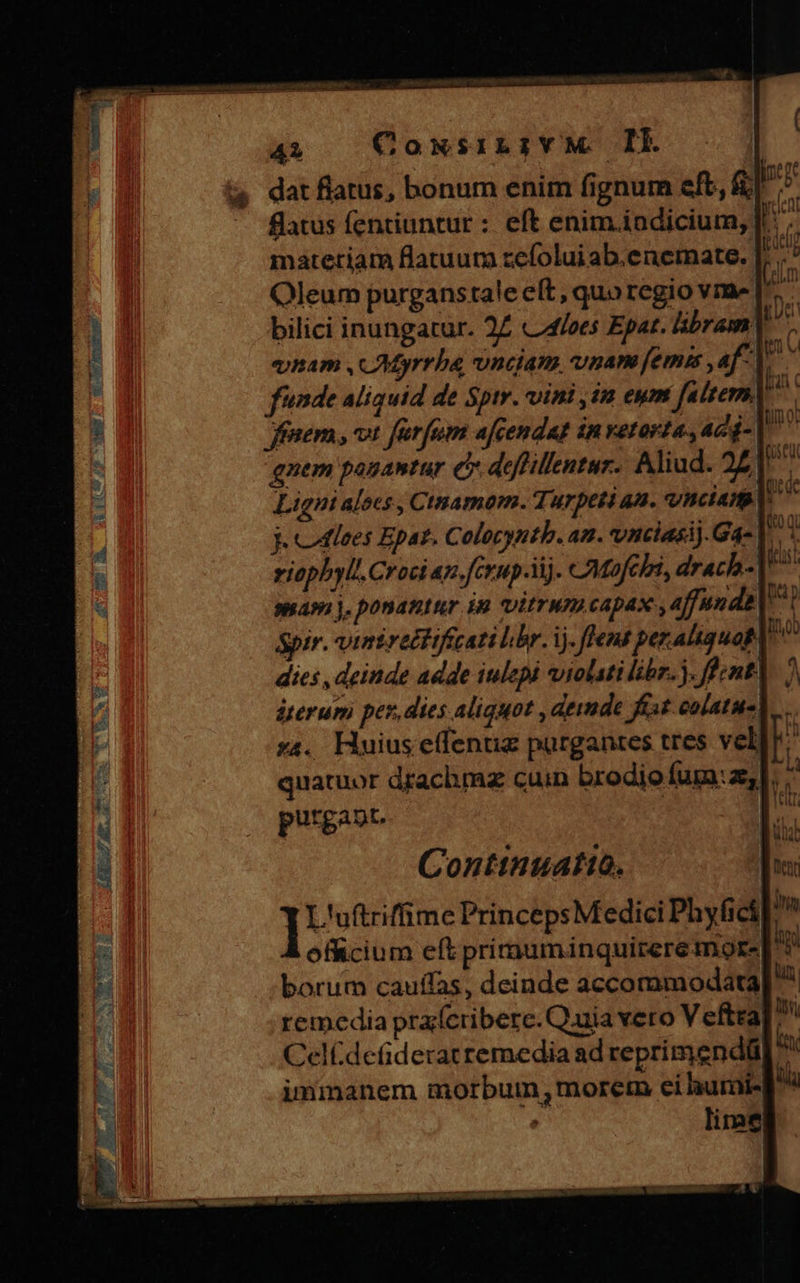 42 CONSILIVM II.
dat flatus, bonum enim ſignum eſt, ſi
flatus ſentiuntur : eſt enim indicium,
materiam flatuum reſolui ab enemate.
Oleum purgans tale eſt, quo regio vm-
bilici inungatur. ℞ Aloes Epat. libram
vnam, Myrrhæ vnciam vnam ſemis, af-
funde aliquid de Spir. vini, in eum ſaltem
finem, vt ſurſum aſcendat in retorta, ad i-
gnem ponantur & deſtillentur. Aliud. ℞
Ligni aloes, Cinamom. Turpeti an. vnciam
j. Aloes Epat. Colocynth. an. vncias ij. Ga-
riophyll. Croci an. ſcrup. iij. Moſchi, drach-
mam j. ponantur in vitrum capax, affunde
Spir. vini rectificati libr. ij. ſtent per aliquot
dies, deinde adde iulepi violati libr. j. ſtent
iterum per dies aliquot, deinde fiat colatu-
ra. Huius eſſentiæ purgantes tres vel
quatuor drachmæ cum brodio ſumtæ,
purgant.
Continuatio.
Illuſtriſſime Princeps Medici Phyſici
officium eſt primum inquirere mor-
borum cauſſas, deinde accommodata
remedia præſcribere. Quia vero Veſtra
Celſ. deſiderat remedia ad reprimendū
immanem morbum, morem ei humi-
lime